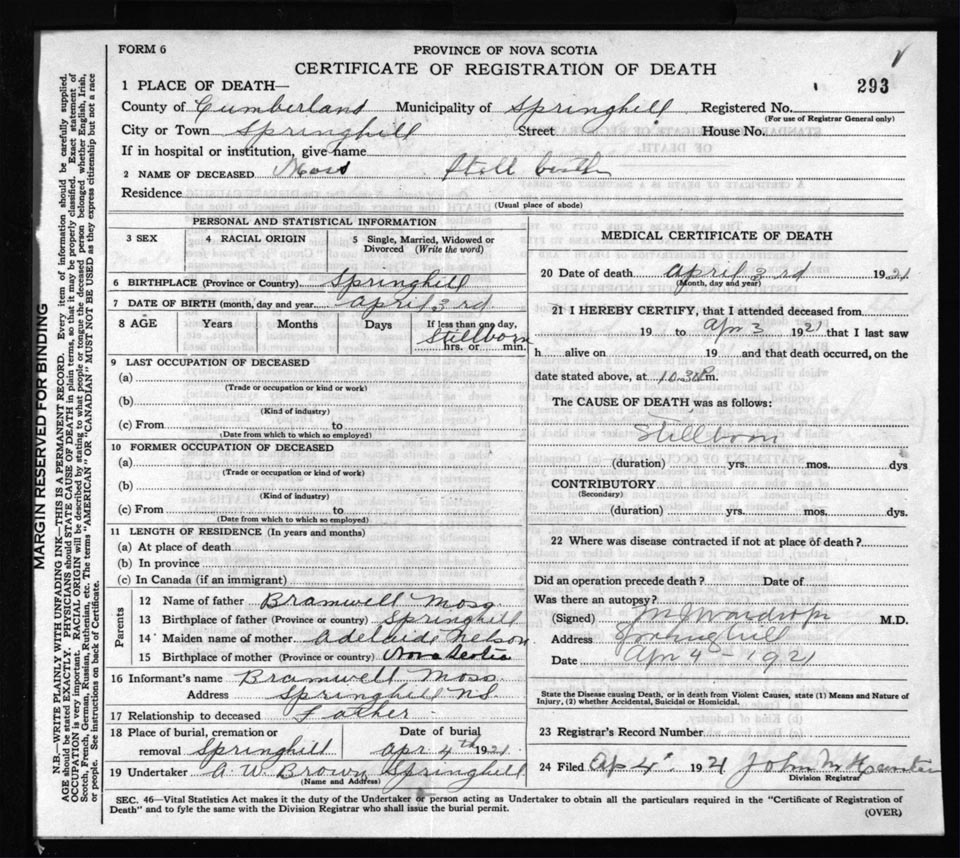 FORM 6
PROVINCE OF NOVA SCOTIA
CERTIFICATE OF REGISTRATION OF DEATH
293
1 PLACE OF DEATH—
County of Cumberland Municipality of Springhill Registered No.
(For use of Registrar General only)
City or Town Springhill Street House No.
If in hospital or institution, give name
2 NAME OF DECEASED Moss Still birth
Residence
(Usual place of abode)
PERSONAL AND STATISTICAL INFORMATION
3 SEX 4 RACIAL ORIGIN 5 Single, Married, Widowed or Divorced (Write the word)
6 BIRTHPLACE (Province or Country) Springhill
7 DATE OF BIRTH (month, day and year) April 3rd
8 AGE Years Months Days If less than one day,
Stillborn
hrs. or min.
9 LAST OCCUPATION OF DECEASED
(a)
(Trade or occupation or kind or work)
(b)
(Kind of industry)
(c) From to
(Date from which to which so employed)
10 FORMER OCCUPATION OF DECEASED
(a)
(Trade or occupation or kind of work)
(b)
(Kind of industry)
(c) From to
(Date from which to which so employed)
11 LENGTH OF RESIDENCE (In years and months)
(a) At place of death
(b) In province
(c) In Canada (if an immigrant)
Parents
12 Name of father Bramwell Moss
13 Birthplace of father (Province or country) Springhill
14 Maiden name of mother Adelaide Nelson
15 Birthplace of mother (Province or country) Nova Scotia
16 Informant's name Bramwell Moss
Address Springhill NS
17 Relationship to deceased Father
18 Place of burial, cremation or removal Springhill Date of burial Apr 4th 1921
19 Undertaker A. W. Brown Springhill
(Name and Address)
MEDICAL CERTIFICATE OF DEATH
20 Date of death April 3rd 1921
(Month, day and year)
21 I HEREBY CERTIFY, that I attended deceased from
19 to Apr 3 1921 that I last saw
h alive on 19 and that death occurred, on the
date stated above, at 10.30 P.m.
The CAUSE OF DEATH was as follows:
Stillborn
(duration) yrs. mos. dys
CONTRIBUTORY
(Secondary)
(duration) yrs. mos. dys.
22 Where was disease contracted if not at place of death?
Did an operation precede death? Date of
Was there an autopsy?
(Signed) M.D.
Address Springhill
Date Apr 4 - 1921
State the Disease causing Death, or in death from Violent Causes, state (1) Means and Nature of
Injury, (2) whether Accidental, Suicidal or Homicidal.
23 Registrar's Record Number
24 Filed Ap 4 1921 John M
Division Registrar
SEC. 46—Vital Statistics Act makes it the duty of the Undertaker or person acting as Undertaker to obtain all the particulars required in the "Certificate of Registration of
Death" and to fyle the same with the Division Registrar who shall issue the burial permit.
(OVER)
MARGIN RESERVED FOR BINDING
N.B.—WRITE PLAINLY WITH UNFADING INK—THIS IS A PERMANENT RECORD. Every item of information should be carefully supplied.
AGE should be stated EXACTLY. PHYSICIANS should STATE CAUSE OF DEATH in plain terms, that it may be properly classified. Exact statement of
OCCUPATION is very important. RACIAL ORIGIN will be described by stating to what people or tongue the deceased person belonged whether English, Irish,
Scotch, French, German, Russian, Ruthenian, etc. The terms "AMERICAN" OR "CANADIAN" MUST NOT BE USED as they express citizenship but not a race
or people. See instructions on back of Certificate.